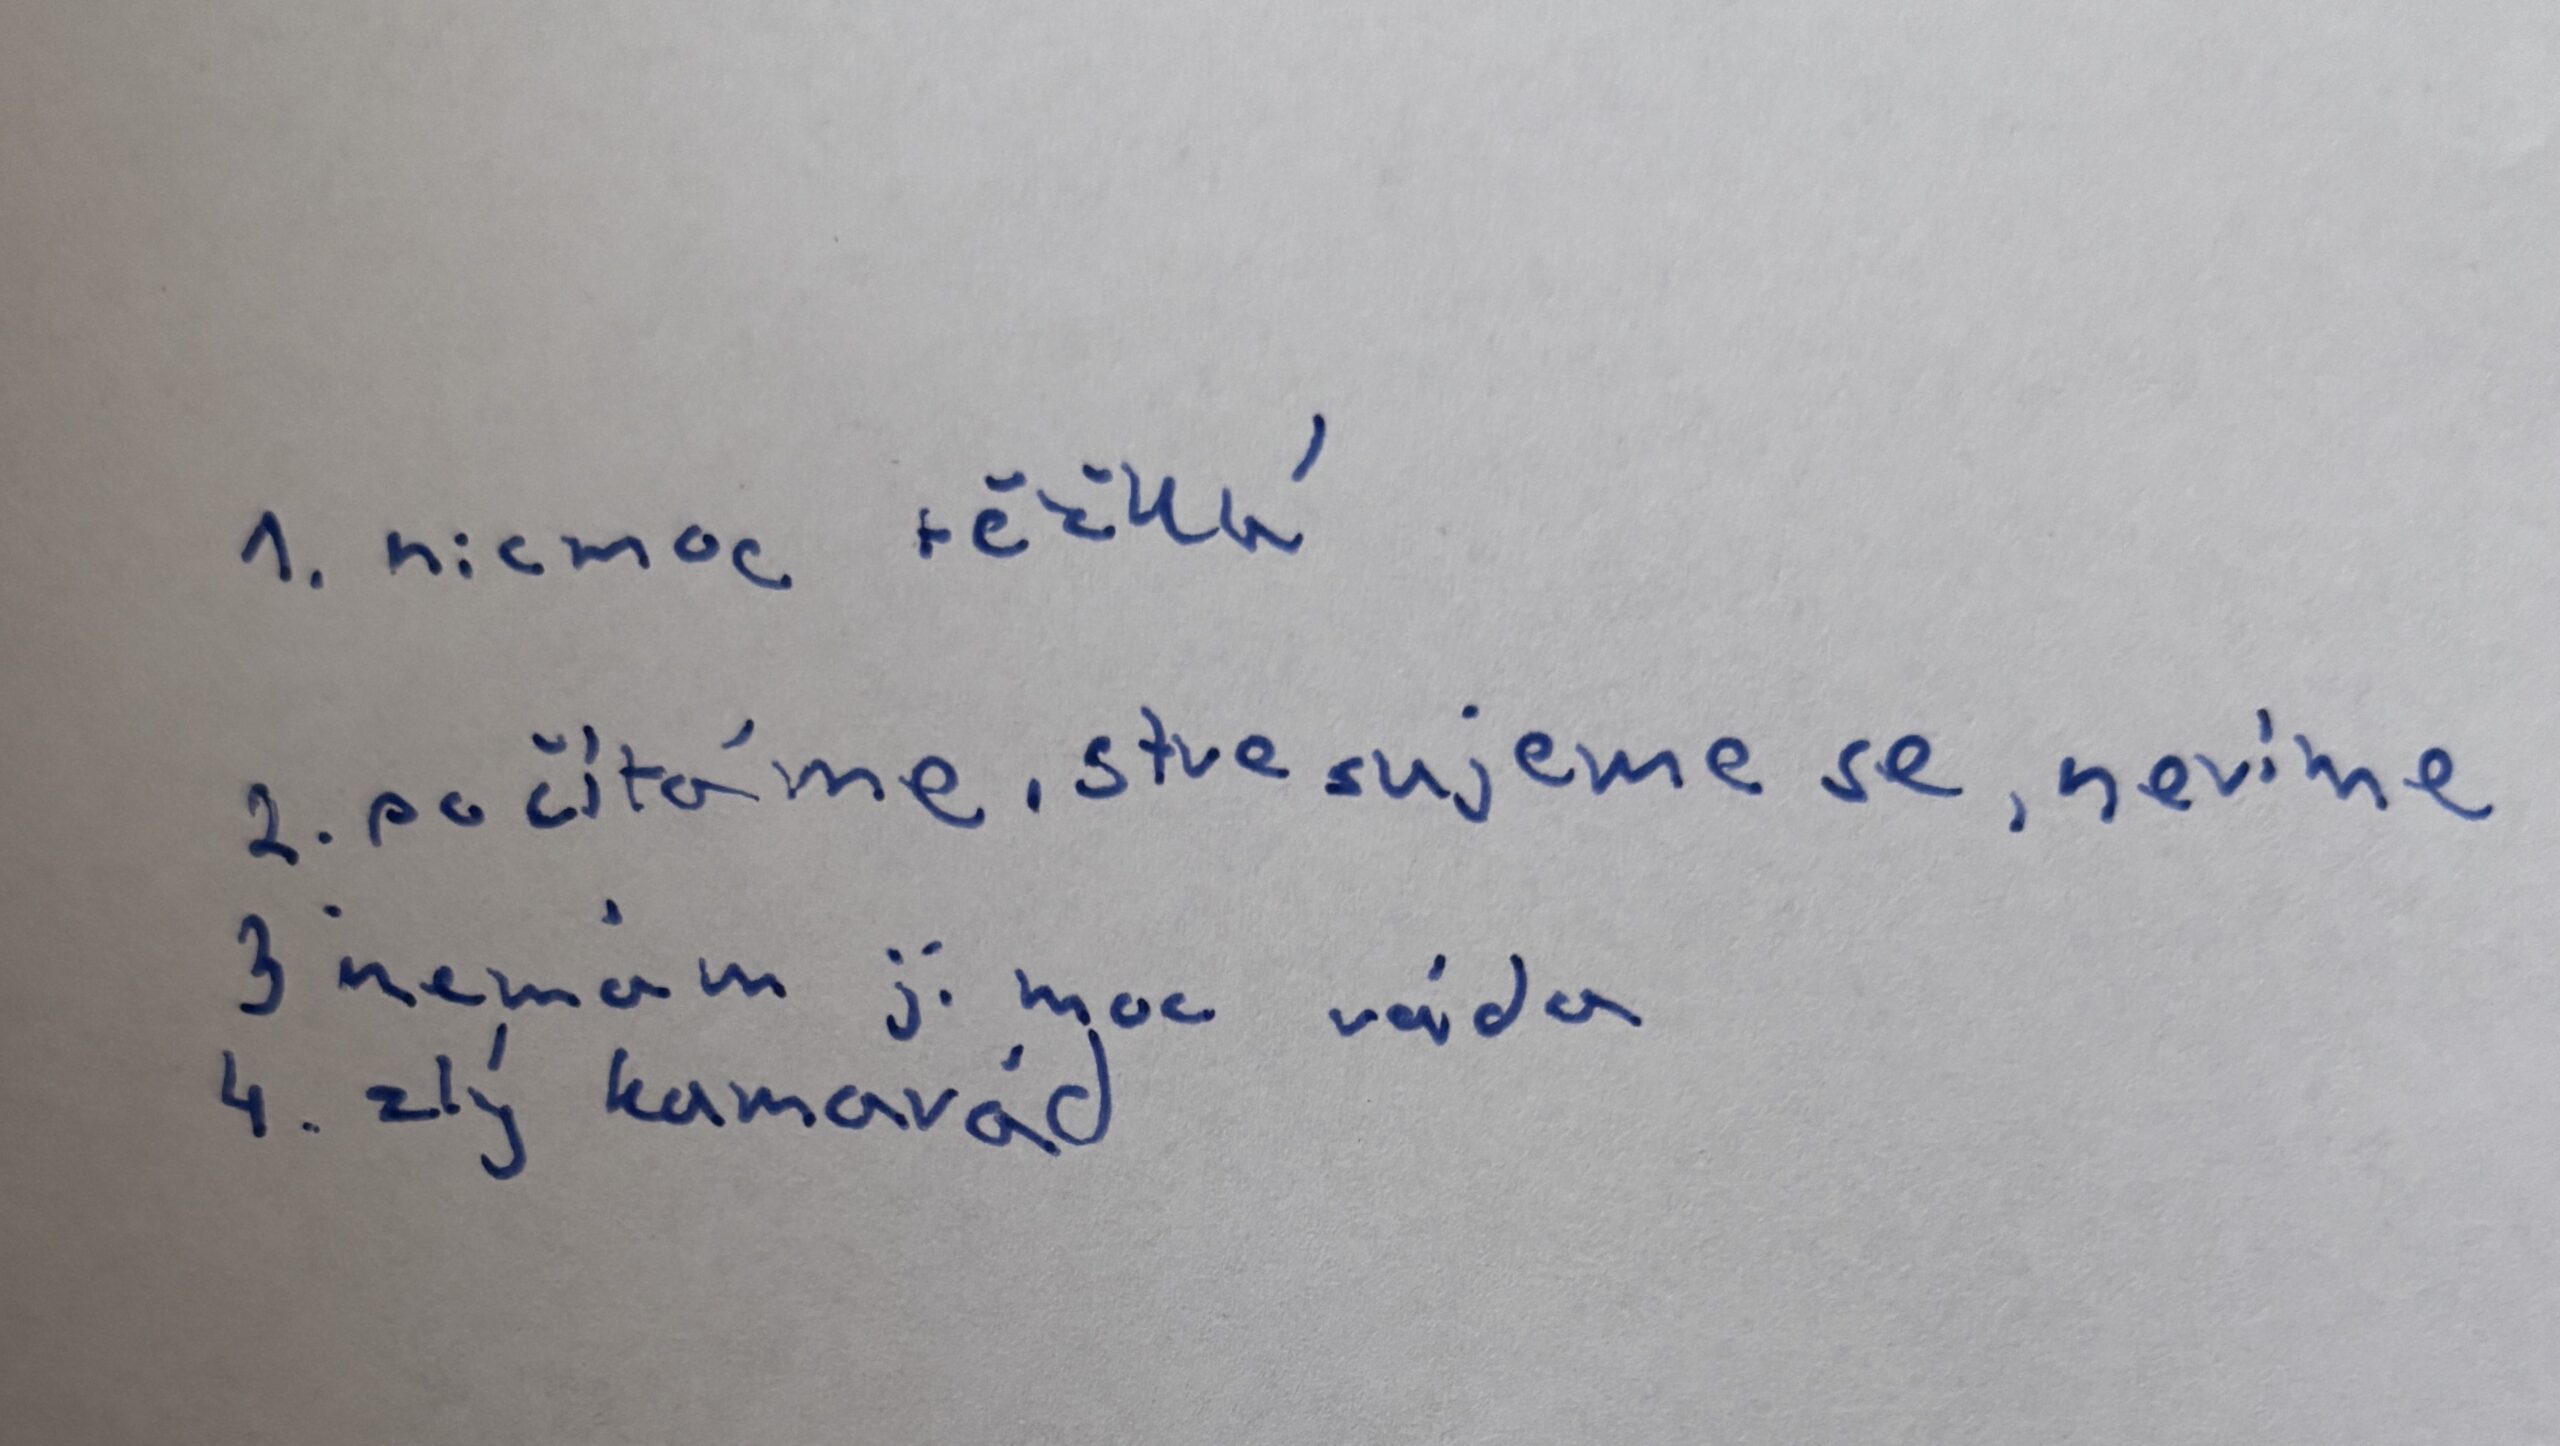 1. nicmoc těžká
2. počítáme, stresujeme se, nevíme
3 nemám ji moc ráda
4. zlý kamarád